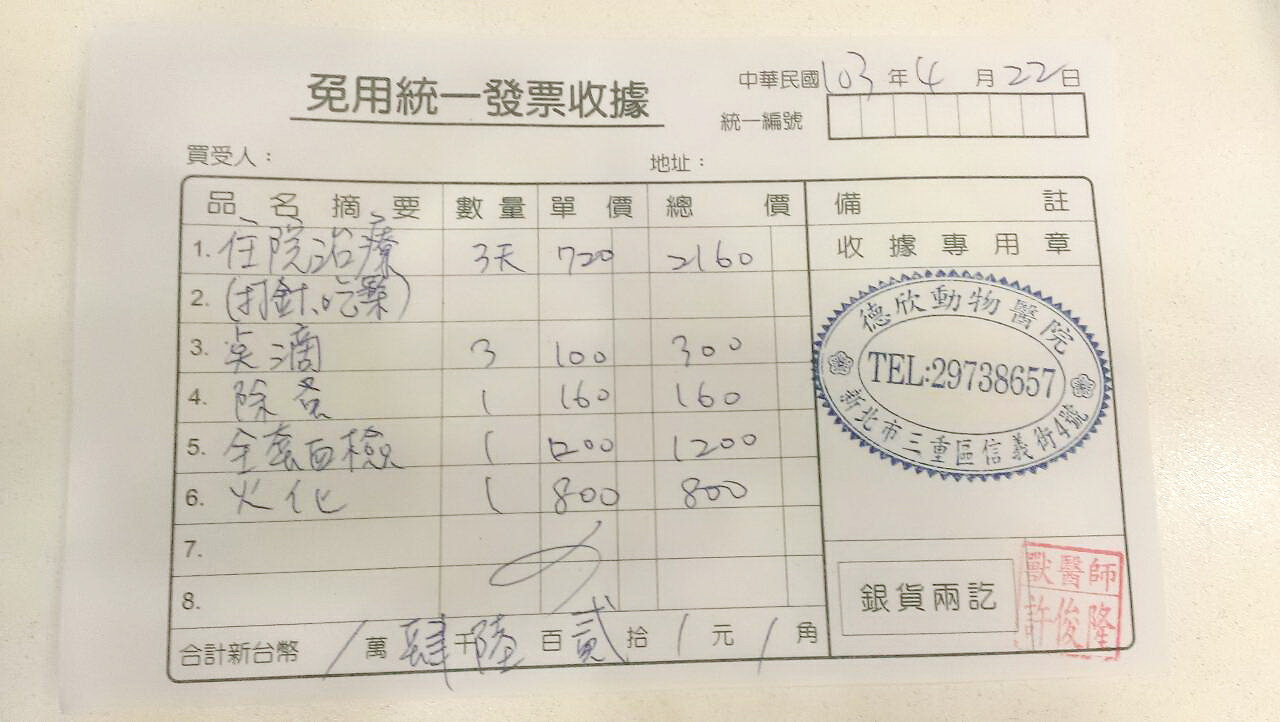 免用統一發票收據
中華民國103年4月22日
統一編號
買受人: 地址:
品名摘要 數量 單價 總價 備註
1. 住院治療 3天 720 2160 收據專用章
2. (打針、吃藥)
3. 点滴 3 100 300
4. 除蚤 1 160 160
5. 全套血檢 1 1200 1200
6. 火化 1 800 800
7.
8.
合計新台幣 / 萬肆千陸百貳拾 / 元 / 角
德欣動物醫院
TEL:29738657
新北市三重區信義街4號
銀貨兩訖
獸醫師
許俊隆